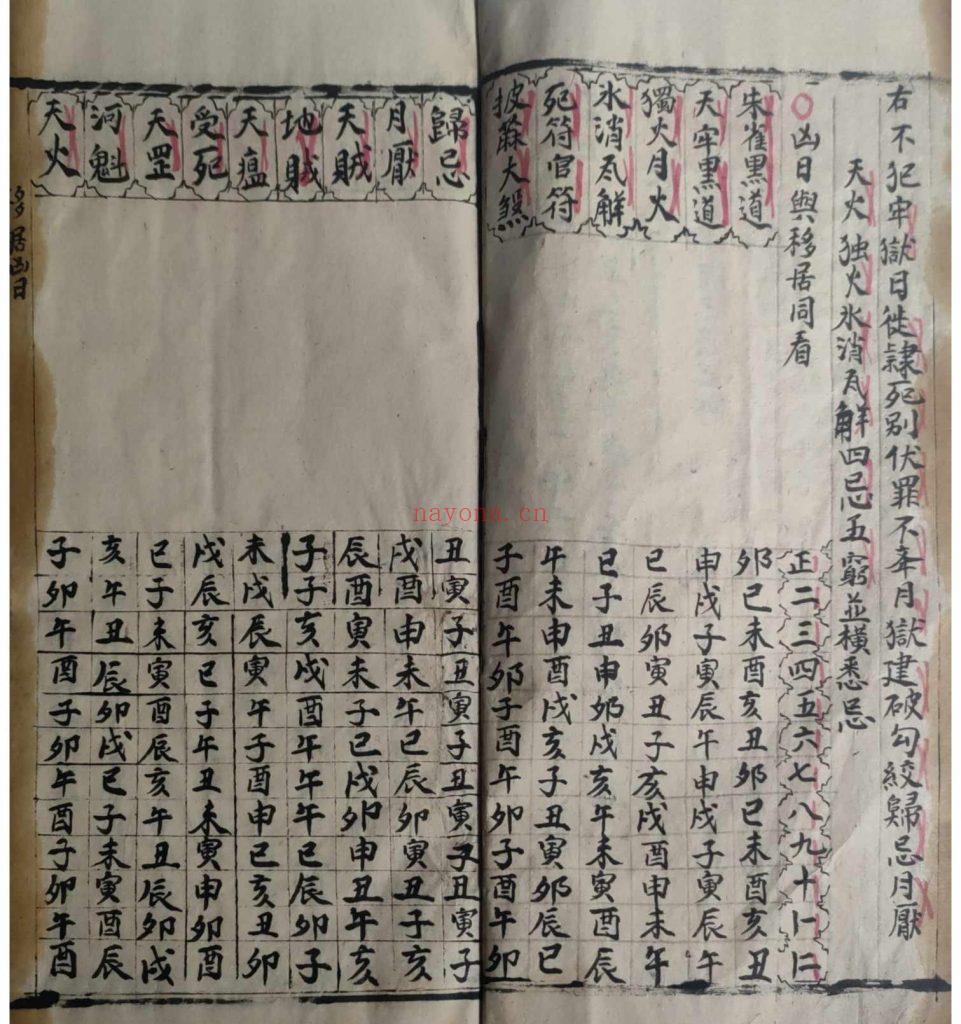 右不犯牢獄日徙隸死别伏罪不奉月獄建破勾絞歸忌月厭
天火独火氷消瓦觧四忌五窮並横悉忌
〇凶日與移居同看
正二三四五六七八九十十一十二
朱雀黑道 卯巳未酉亥丑卯巳未酉亥丑
天牢黑道 申戌子寅辰午申戌子寅辰午
獨火月火 巳辰卯寅丑子亥戌酉申未午
氷消瓦觧 巳子丑申卯戌亥午未寅酉辰
死符官符 午未申酉戌亥子丑寅卯辰巳
披蔴大煞 子酉午卯子酉午卯子酉午卯
歸忌 丑寅子丑寅子丑寅子丑寅子
月厭 戌酉申未午巳辰卯寅丑子亥
天賊 辰酉寅未子巳戌卯申丑午亥
地賊 子子亥戌酉午午午巳辰卯子
天瘟 未戌辰寅午子酉申巳亥丑卯
受死 戌辰亥巳子午丑未寅申卯酉
天罡 巳子未寅酉辰亥午丑辰卯戌
河魁 亥午丑辰卯戌巳子未寅酉辰
天火 子卯午酉子卯午酉子卯午酉
移居凶日
nayona.cn